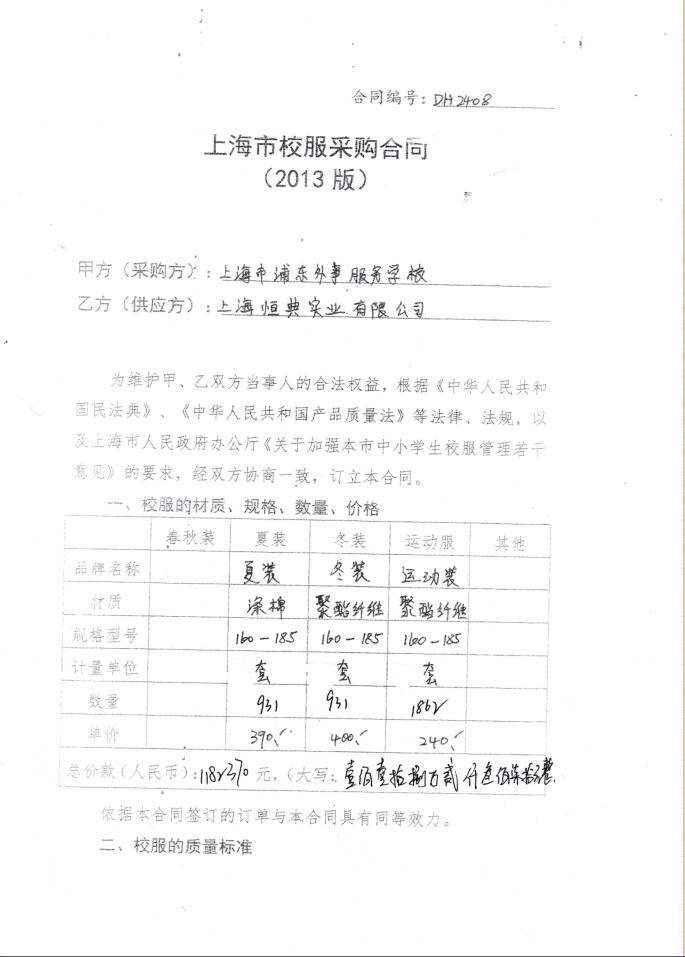 合同编号：DH2408
上海市校服采购合同
（2013 版）
甲方（采购方）：上海市浦东外事服务学校
乙方（供应方）：上海恒典实业有限公司
为维护甲、乙双方当事人的合法权益，根据《中华人民共和
国民法典》、《中华人民共和国产品质量法》等法律、法规，以
及上海市人民政府办公厅《关于加强本市中小学生校服管理若干
意见》的要求，经双方协商一致，订立本合同。
一、校服的材质、规格、数量、价格
春秋装 夏装 冬装 运动服 其他
品牌名称 夏装 冬装 运动装
材质 涤棉 聚酯纤维 聚酯纤维
规格型号 160-185 160-185 160-185
计量单位 套 套 套
数量 931 931 1862
单价 390.- 400.- 240.-
总价款（人民币）：1182370 元，（大写：壹佰壹拾捌万贰仟叁佰柒拾元整
依据本合同签订的订单与本合同具有同等效力。
二、校服的质量标准